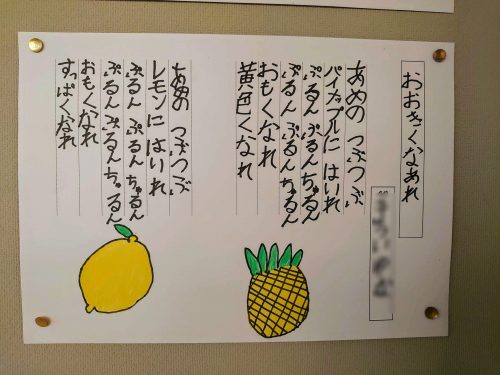 おおきくなあれ
あめの つぶつぶ
パイナップルに はいれ
ぷるん ぷるんちゅるん
ぷるん ぷるんちゅるん
おもくなれ
黄色くなれ
あめの つぶつぶ
レモンに はいれ
ぷるん ぷるんちゅるん
ぷるん ぷるんちゅるん
おもくなれ
すっぱくなれ